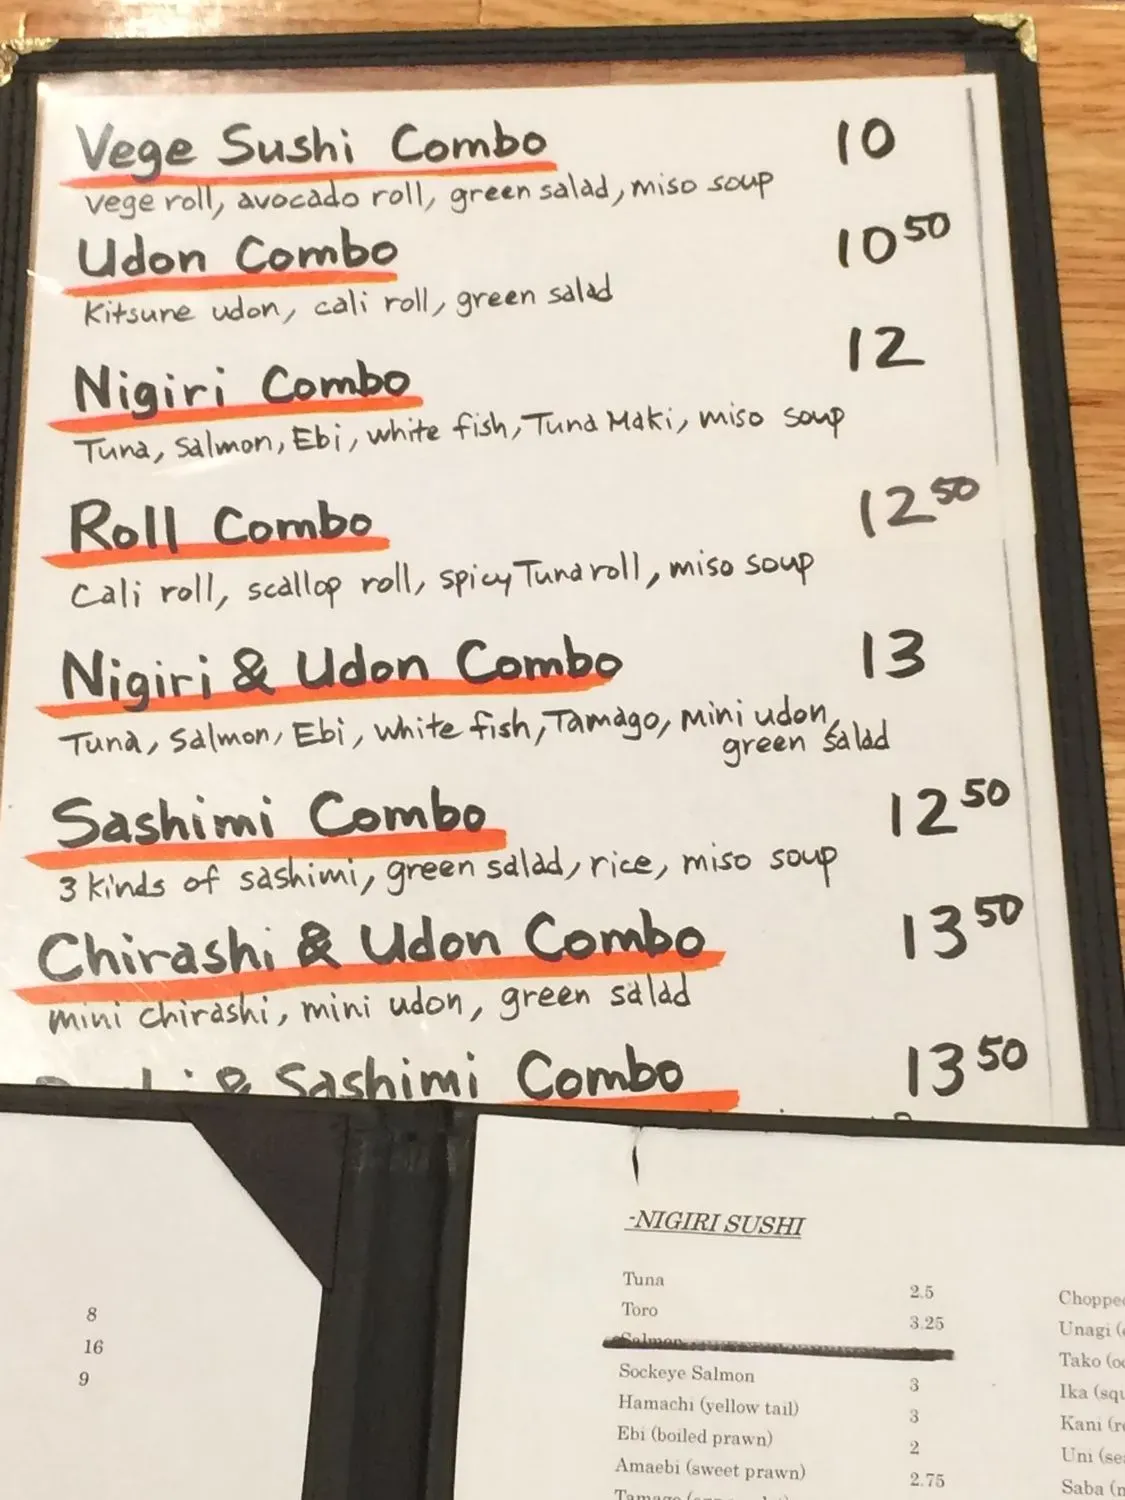 Vege Sushi Combo 10
vege roll, avocado roll, green salad, miso soup
Udon Combo 10 50
Kitsune udon, cali roll, green salad
Nigiri Combo 12
Tuna, Salmon, Ebi, white fish, Tuna Maki, miso soup
Roll Combo 12 50
Cali roll, scallop roll, spicy Tuna roll, miso soup
Nigiri & Udon Combo 13
Tuna, Salmon, Ebi, white fish, Tamago, Mini udon,
green salad
Sashimi Combo 12 50
3 kinds of sashimi, green salad, rice, miso soup
Chirashi & Udon Combo 13 50
mini chirashi, mini udon, green salad
& Sashimi Combo 13 50
8
16
9
-NIGIRI SUSHI
Tuna 2.5
Toro 3.25
Salmon
Sockeye Salmon 3
Hamachi (yellow tail) 3
Ebi (boiled prawn) 2
Amaebi (sweet prawn) 2.75
Unagi
Tako
Ika
Kani
Uni
Saba